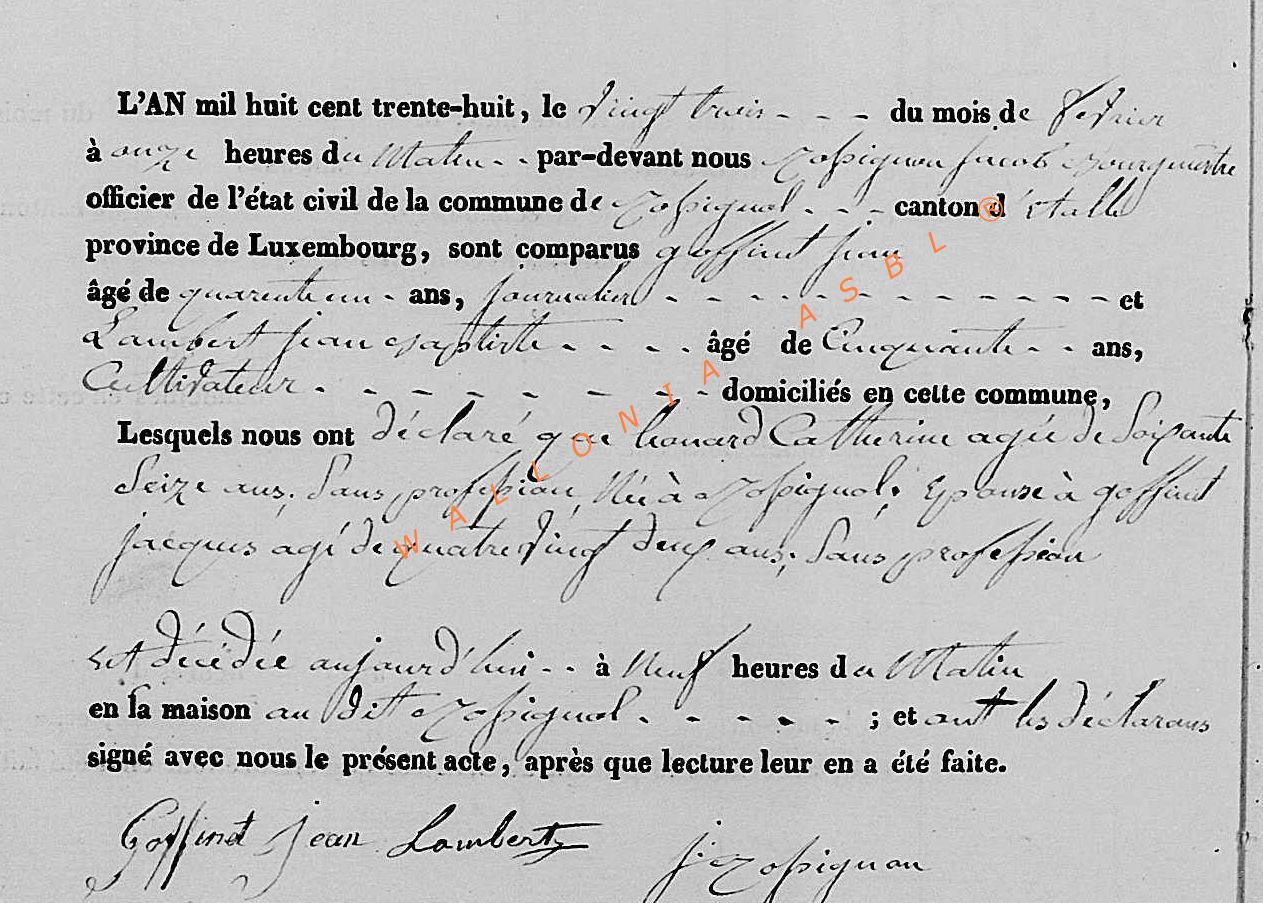 L'AN mil huit cent trente-huit, le vingt trois - - - du mois de fevrier
à onze heures du Matin - - par-devant nous Rossignon Jacob Bourgmestre
officier de l'état civil de la commune de Rossignol - - - canton d'étalle
province de Luxembourg, sont comparus goffinet jean
âgé de quarente un - ans, journalier - - - - - - - - - - - - - et
Lambert jean Baptiste - - - - âgé de Cinquante - - ans,
Cultivateur - - - - - - - - - domiciliés en cette commune,
Lesquels nous ont déclaré que Catherine agée de Soixante
Seize ans; Sans profession, Née à Rossignol; Epouse à goffinet
jacques agé de quatre vingt deux ans; Sans profession
est décédée aujourd'hui - - à Neuf heures du Matin
en la maison au dit Rossignol - - - - - ; et ont les déclarans
signé avec nous le présent acte, après que lecture leur en a été faite.
Goffinet Jean Lambert
j. Rossignon
WALLONIA ASBL ©